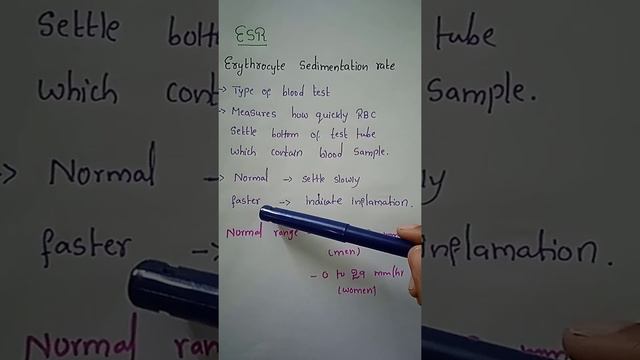 ESR
Erythrocyte Sedimentation rate
-> Type of blood test
-> Measures how quickly RBC
Settle bottom of test tube
which contain blood sample.
-> Normal -> settle slowly
faster -> indicate inflamation.
Normal range
(men)
- 0 to 29 mm/hr
(women)
Settle
tube
which
Sample.
-> Normal
faster
inflamation.
Normal